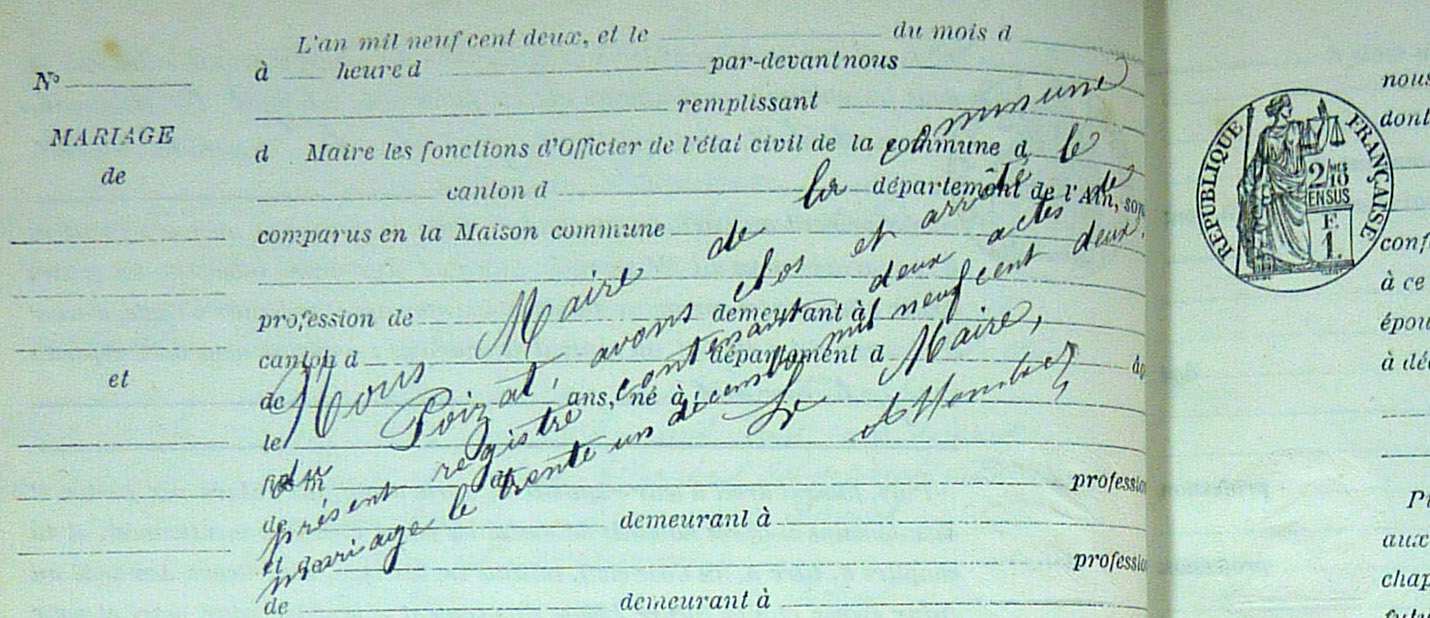 L'an mil neuf cent deux, et le du mois d
à heure d par-devant nous
N°
remplissant
MARIAGE
d Maire les fonctions d'Officier de l'état civil de la commune d
de
canton d département de l'Ain, son
comparus en la Maison commune
profession de demeurant à
canton d département d
et
de ans, né à
le
de
profession
de demeurant à
et
profession
de demeurant à
Nous Maire de la commune
Poizat, avons clos et arrêté le
présent registre contenant deux actes de
mariage le trente un décembre mil neuf cent deux.
Le Maire,
RÉPUBLIQUE FRANÇAISE
2/10mes
EN SUS
E
1.
nous
dont
conf
à ce
épou
à déc
Pu
aux
chap